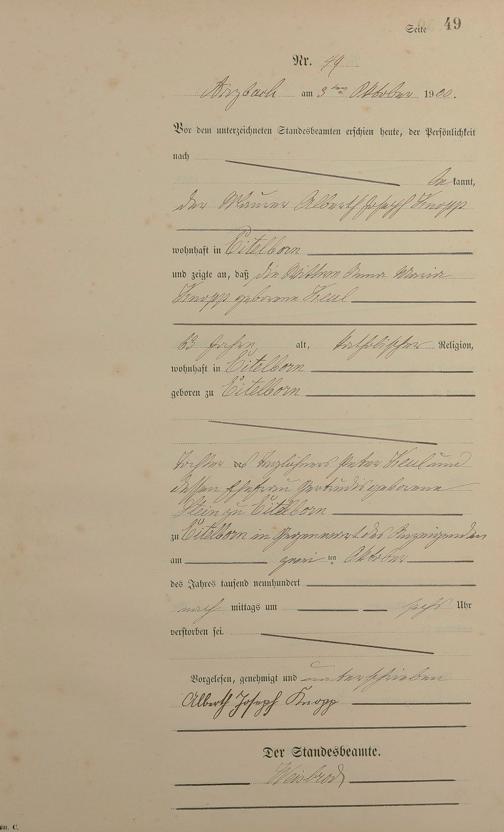 Seite 49
Nr. 49
Arzbach am 3ten Oktober 1900.
Vor dem unterzeichneten Standesbeamten erschien heute, der Persönlichkeit
nach
bekannt,
der Maurer Alberth Joseph Knopp
wohnhaft in Eitelborn
und zeigte an, daß die Wittwe Anna Maria
Knopp geborene Keul
63 Jahre alt, katholischer Religion,
wohnhaft in Eitelborn
geboren zu Eitelborn
Tochter des Taglöhners Peter Keul und
dessen Ehefrau Gertrudis geborene
Stein zu Eitelborn
zu Eitelborn in Gegenwart des Anzeigenden
am zwei ten Oktober
des Jahres tausend neunhundert
nach mittags um sechs Uhr
verstorben sei.
Vorgelesen, genehmigt und unterschrieben
Alberth Joseph Knopp
Der Standesbeamte.
Weisbrod